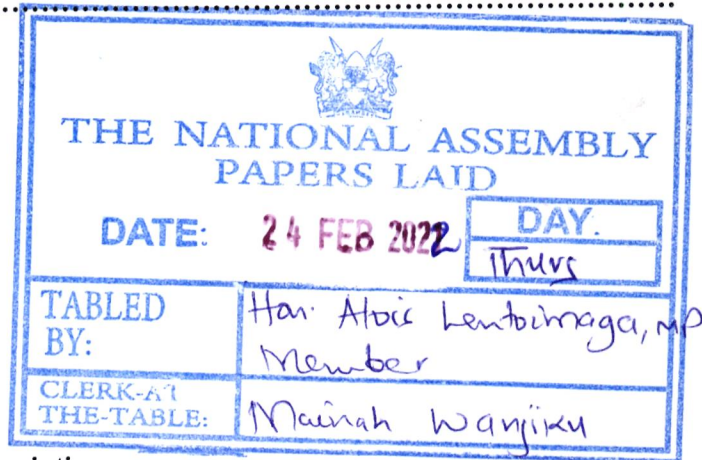 THE NATIONAL ASSEMBLY
PAPERS LAID
DATE: 24 FEB 2022
DAY.
Thurs
TABLED BY:
Hon. Alois Lentoimaga, MP
Member
CLERK-AT THE-TABLE:
Mainah Wanjiku